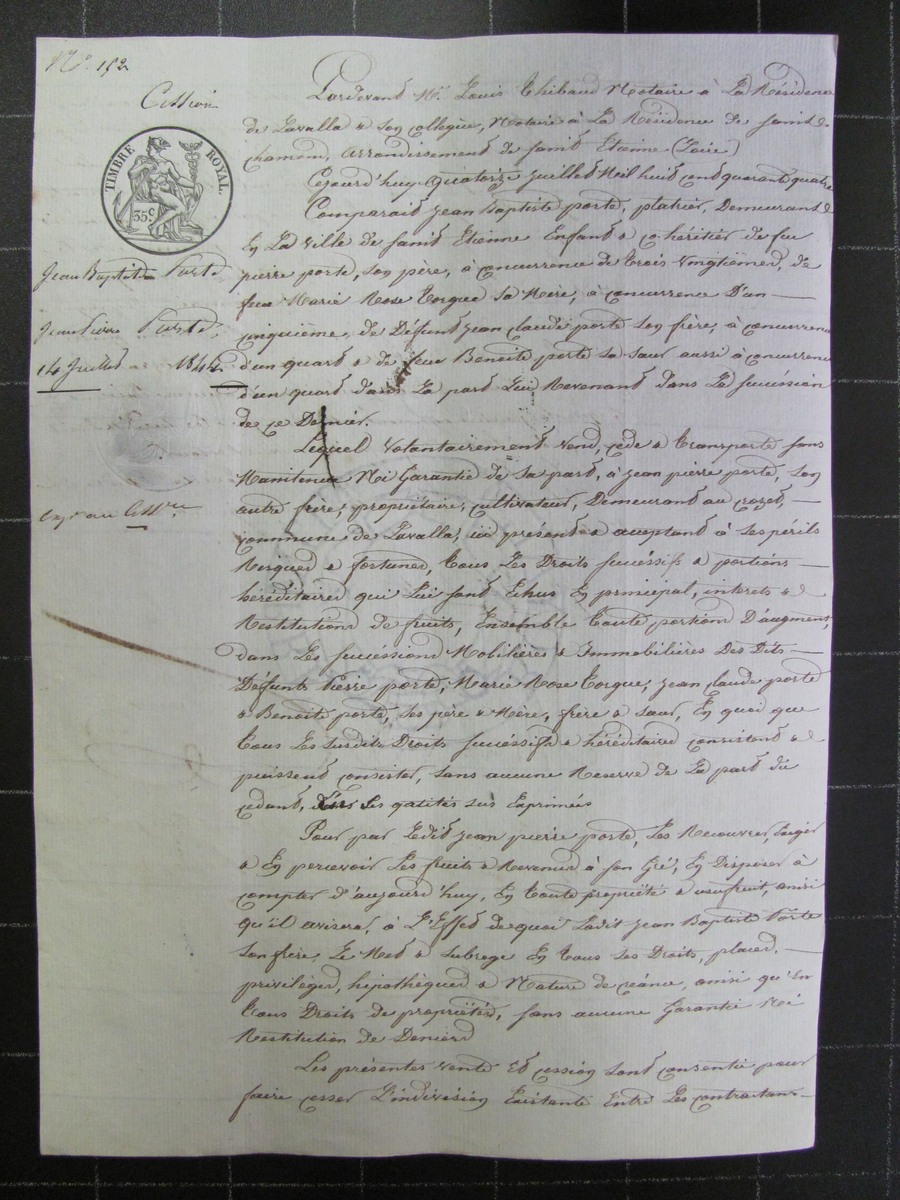 N° 152
Cession
TIMBRE ROYAL.
35 c.
Jean Baptiste Porte
Jean Pierre Porte
14 Juillet 1844
Pardevant Me Louis Thibaud Notaire à La Résidence
de Lavalla & son collegue, Notaire à La Résidence de saint
chamond, arrondissement de saint Etienne (Loire)
Cejourd'huy quatorze juillet Mil huit cent quarante quatre
Comparait jean Baptiste porte, platrier, Demeurant
En La ville de saint Etienne Enfant & cohéritier de feu
pierre porte, son père, à concurrence de trois vingtièmes, de
feue Marie Rose Torgue sa Mère, à concurrence D'un
cinquième, de Défunt jean claude porte son frère, à concurrence
d'un quart & de feue Benoite porte sa sœur aussi à concurrence
d'un quart dans La part Lui Revenant Dans La succession
de ce Dernier.
Lequel volontairement vend, cède & transporte sans
Maintenue Ni Garantie de sa part, à jean pierre porte, son
autre frère, propriétaire, cultivateur, Demeurant au crozet,
commune de Lavalla, ici présent & acceptant à ses périls
Risques & fortunes, tous Les Droits successifs & portions
héréditaires qui Lui sont Echus En principal, interets &
Restitutions de fruits, Ensemble toute portion D'augment,
dans Les successions Mobilières & Immobilières Des Dits
Défunts Pierre porte, Marie Rose Torgue, jean claude porte
& Benoite porte, ses père & Mère, frère & sœur, En quoi que
tous Les susdits Droits successifs & héréditaires consistent &
puissent consister, sans aucune Reserve de La part du
cedant, dans Les qotités sus Exprimées
Pour par Ledit jean pierre porte, Les Recouvrer, Exiger
& En percevoir Les fruits & Revenus à son Gré, En Disposer à
compter d'aujourd'huy, En toute propriété & usufruit, ainsi
qu'il avisera, à L'Effet de quoi Ledit jean Baptiste Porte
son frère, Le Met & subroge En tous ses Droits, places,
privilèges, hipothèques & Nature de créance, ainsi qu'En
tous Droits de propriétés, sans aucune Garantie Ni
Restitution de Deniers
Les présentes vente Et cession sont consentie pour
faire cesser L'indivision Existante Entre Les contractans